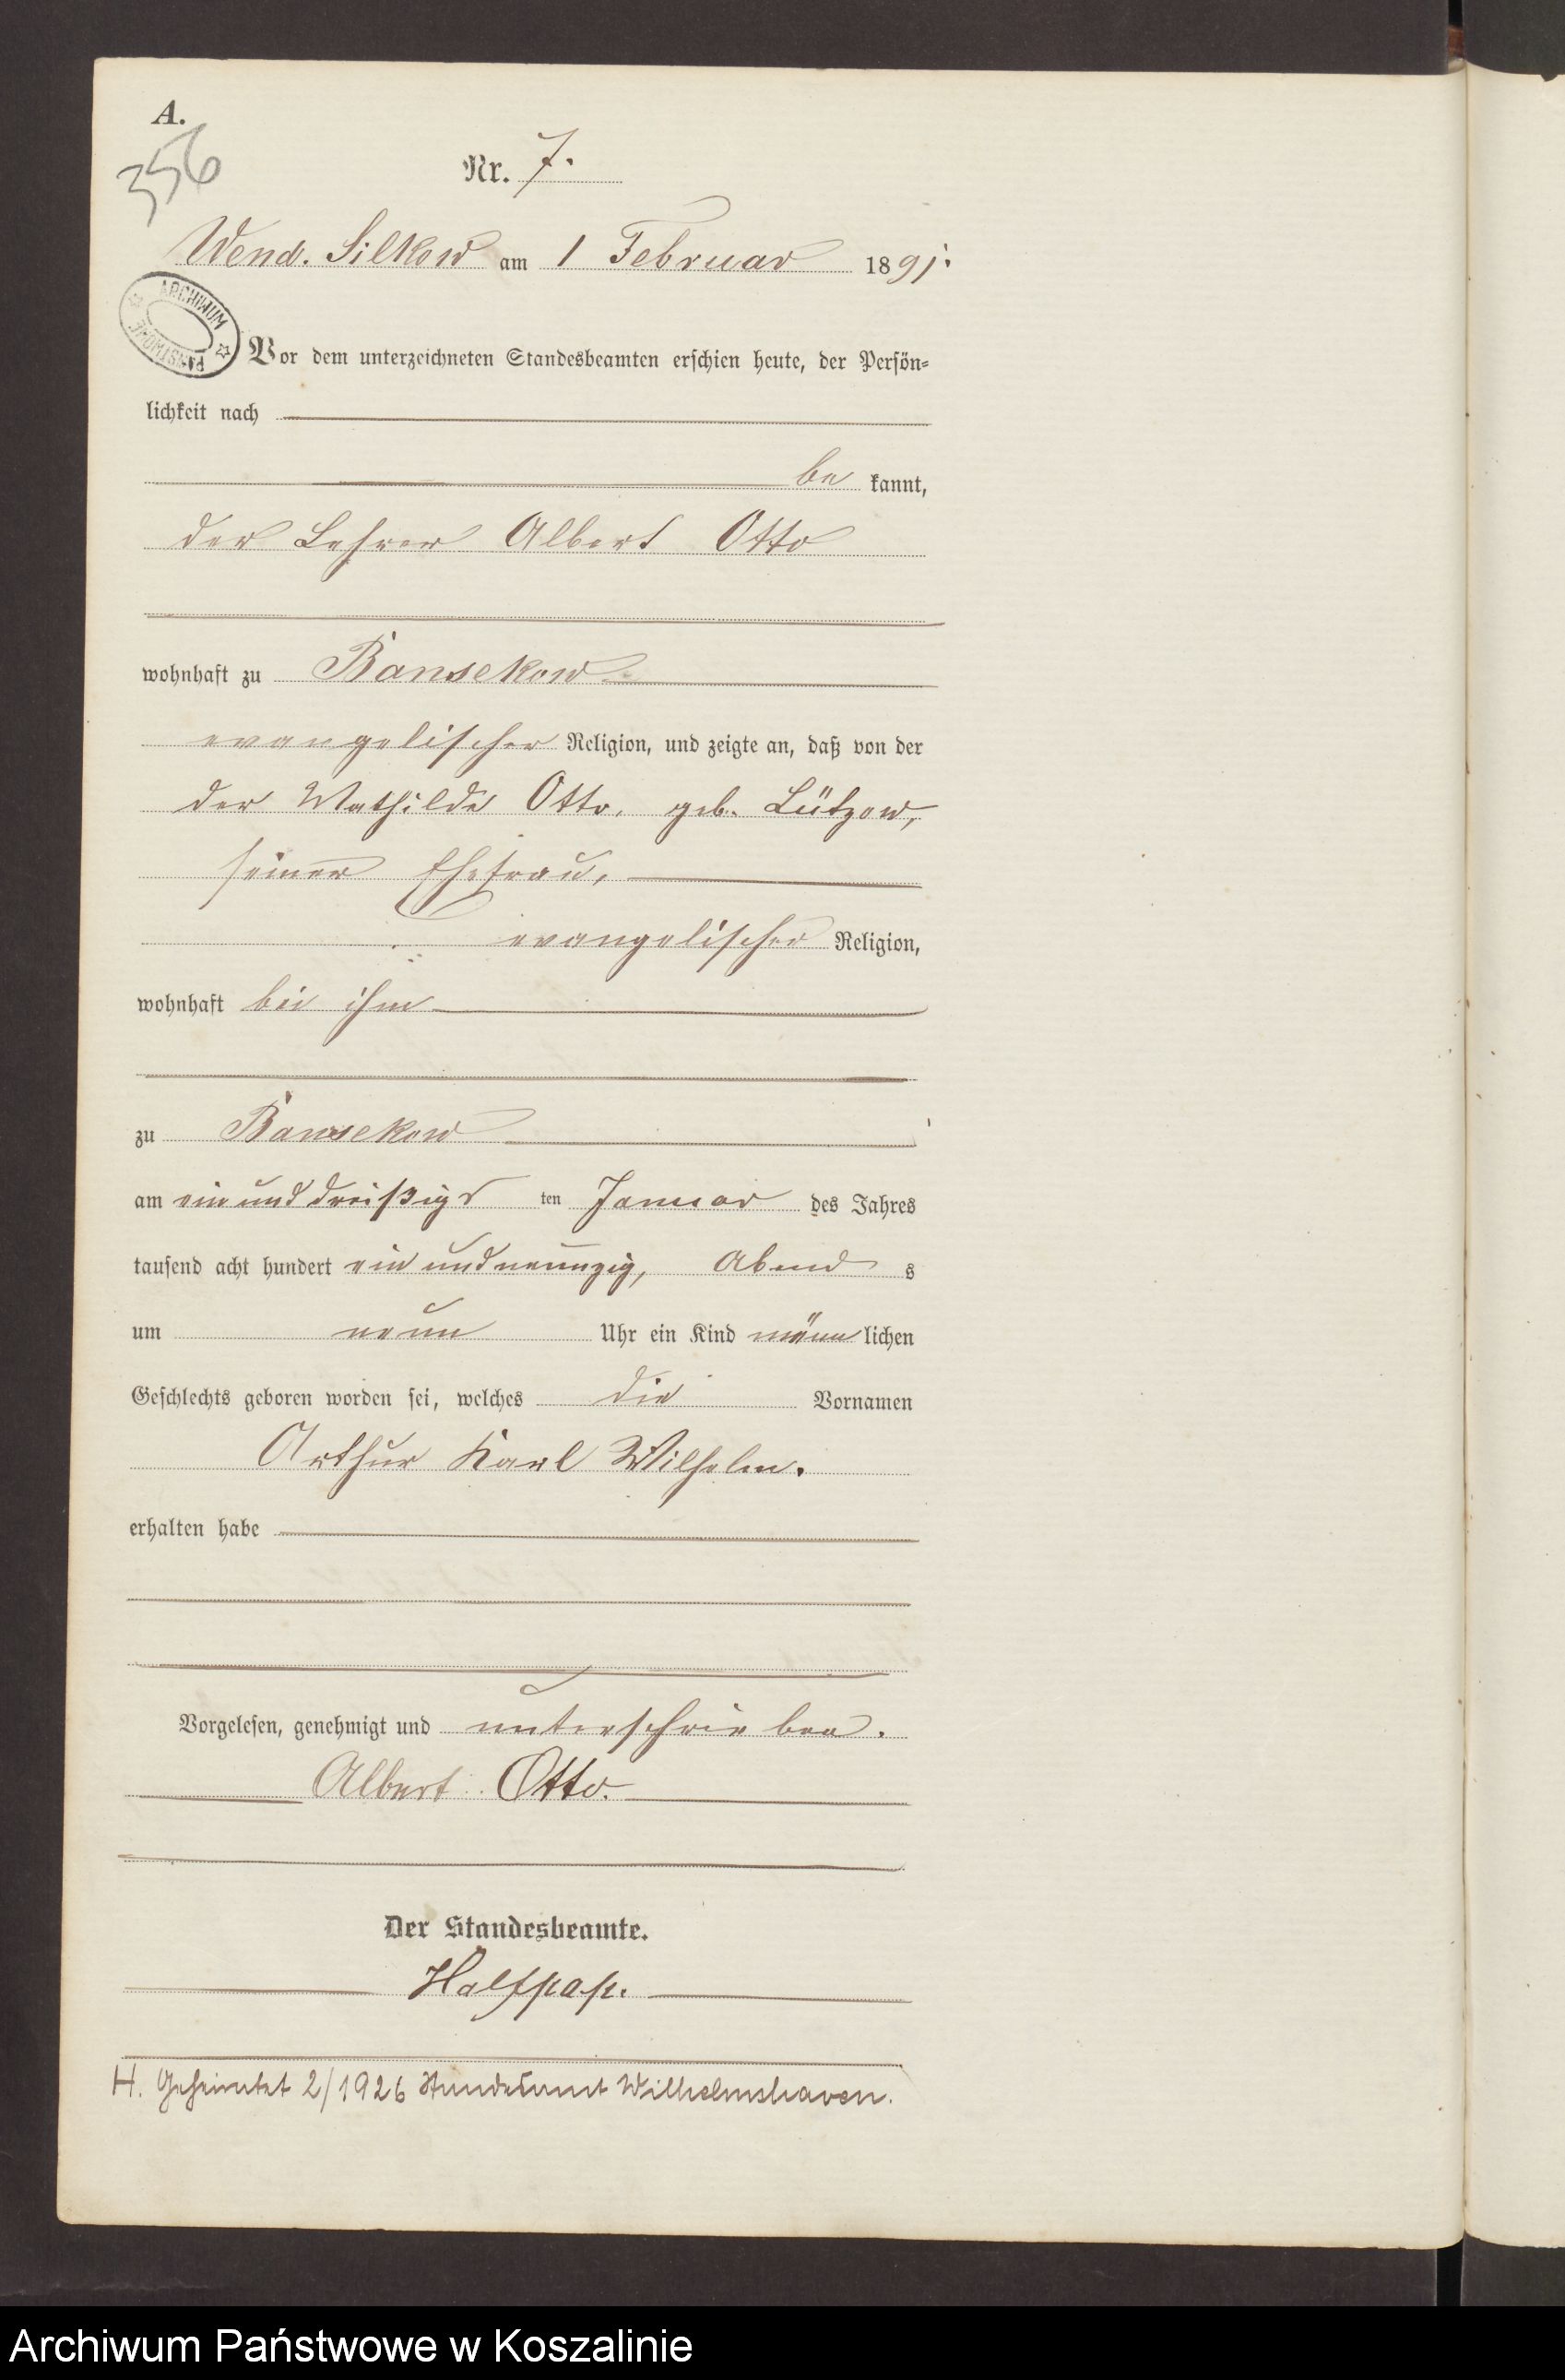 A.
356
Nr. 7.
Wend. Silkow am 1 Februar 1891.
ARCHIWUM PAŃSTWOWE
Vor dem unterzeichneten Standesbeamten erschien heute, der Persön-
lichkeit nach
be kannt,
der Lehrer Albert Otto
wohnhaft zu Bansekow
evangelischer Religion, und zeigte an, daß von der
der Mathilde Otto, geb. Lützow,
seiner Ehefrau,
evangelischer Religion,
wohnhaft bei ihm
zu Bansekow
am ein und dreißigs ten Januar des Jahres
tausend acht hundert ein und neunzig, Abend s
um neun Uhr ein Kind männ lichen
Geschlechts geboren worden sei, welches die Vornamen
Arthur Karl Wilhelm.
erhalten habe
Vorgelesen, genehmigt und unterschrieben.
Albert Otto.
Der Standesbeamte.
Halfpap.
H. Geheiratet 2/1926 Standesamt Wilhelmshaven.
Archiwum Państwowe w Koszalinie